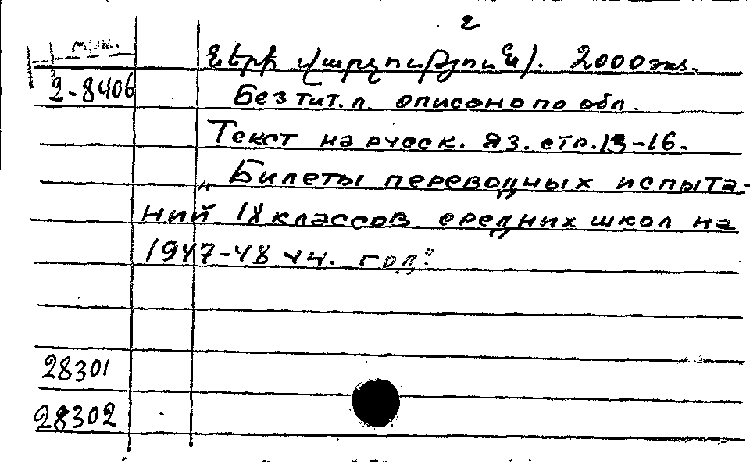 2
ների վարչություն). 2000 экз.
2-8406
Без тит. л. описано по обл.
Текст на русск. яз. стр. 13-16.
„Билеты переводных испыта-
ний IX классов средних школ на
1947-48 уч. год."
28301
28302